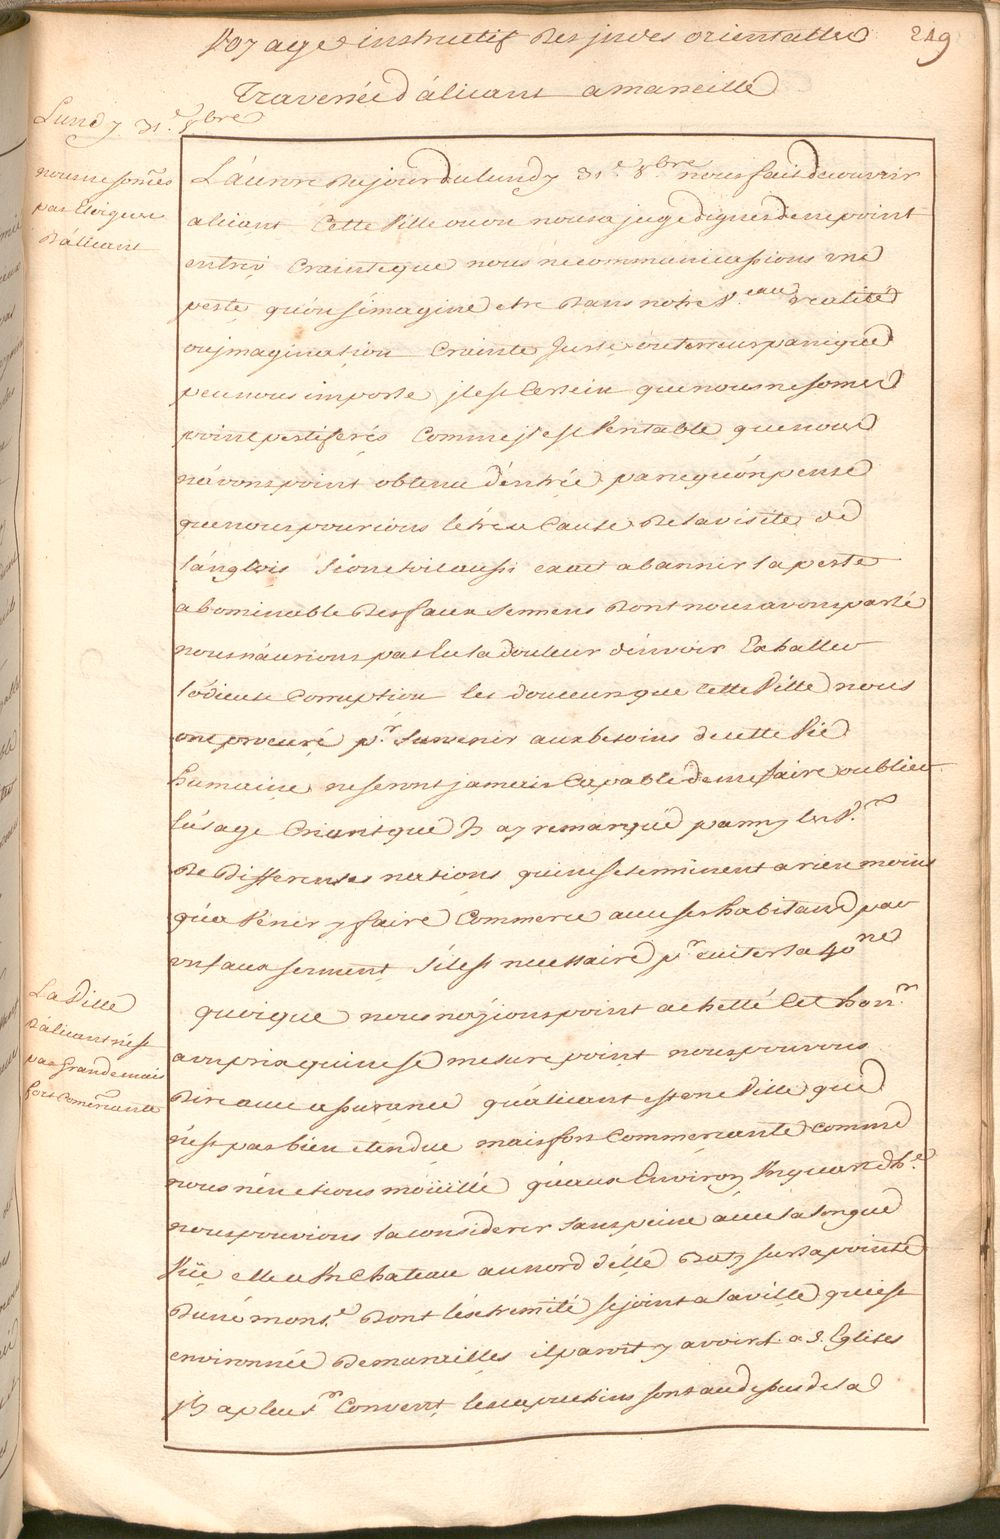 Voyage instructif des indes orientalles 249
Traversée d'álicant a marseille
Lundy 31.e 8bre
nous ne somes
pas Eloignes
d'álicant
L'áurore du jour du lundy 31.e 8.bre nous fait decouvrir
alicant Cette Ville ou on nous a juge dignes de ne point
entrer Crainte que nous ne communicassions une
peste qu'on s'imagine etre dans notre V.eau realité
ou jmagination Crainte juste ou terreur panique
peu nous importe jl est Certein que nous ne somes
point pestiferés Comme jl est Veritable que nous
n'ávons point obtenu d'éntrée parcequ'on pense
que nous pourions l'étre a Cause de la visite de
l'ánglois si on etoit aussi exact a bannir la peste
abominable des faux sermens dont nous avons parlé
nous n'áurions pas Eu la douleur d'én voir Exhaller
l'ódieuse Corruption les douceurs que Cette Ville nous
ont procuré p.r survenir aux besoins de cette Vie
humaine ne seront jamais Capable de me faire oublier
l'úsage Criant que j'y ay remarqué parmy les V.x
de Differentes nations qui ne se terminent a rien moins
qu'a Venir y faire Commerce avec ses habitans par
un faux serment s'il est necessaire p.r eviter la 40.ne
quoique nous n'áyions point achetté Cet hon.r
a un prix qui ne se mesure point nous pouvons
Dire avec assurance qu'álicant est une Ville qui
n'ést pas bien etendue mais fort Commercante comme
nous n'én etions moüillé qu'áux Environ Un quart d'h.e
nous pouvions la considerer sans peine avec la longue
Vüe elle a Un Chateau au nord d'élle Baty sur la pointe
D'une mont.e Dont l'éxtremité se joint a la ville qui est
environnée de murailles il paroit y avoir 2. a 3. Eglises
jl y a plus.rs Couvent les capucins sont au dessus de la
La Ville
d'álicant n'ést
pas Grande mais
fort Comercante